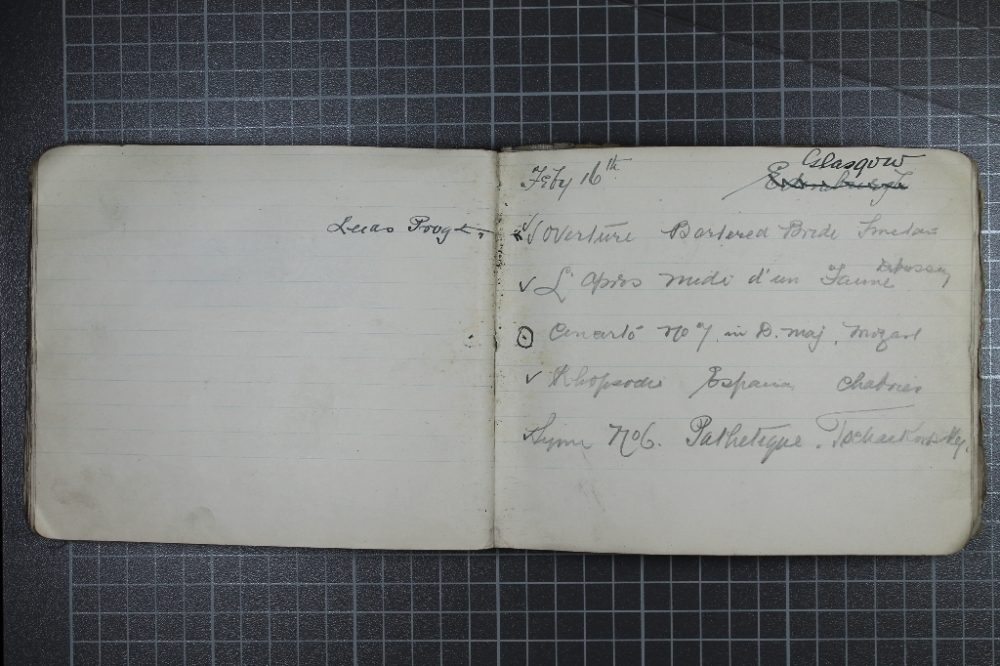 Lucas Voogt.
Feby 16th Glasgow
Edinburgh
Overture Bartered Bride Smetana
L' Apres midi d'un Faune Debussy
Concerto No 7. in D. maj. Mozart
Rhapsodie Espana Chabrier
Sym No 6. Pathetique. Tschaikovsky.